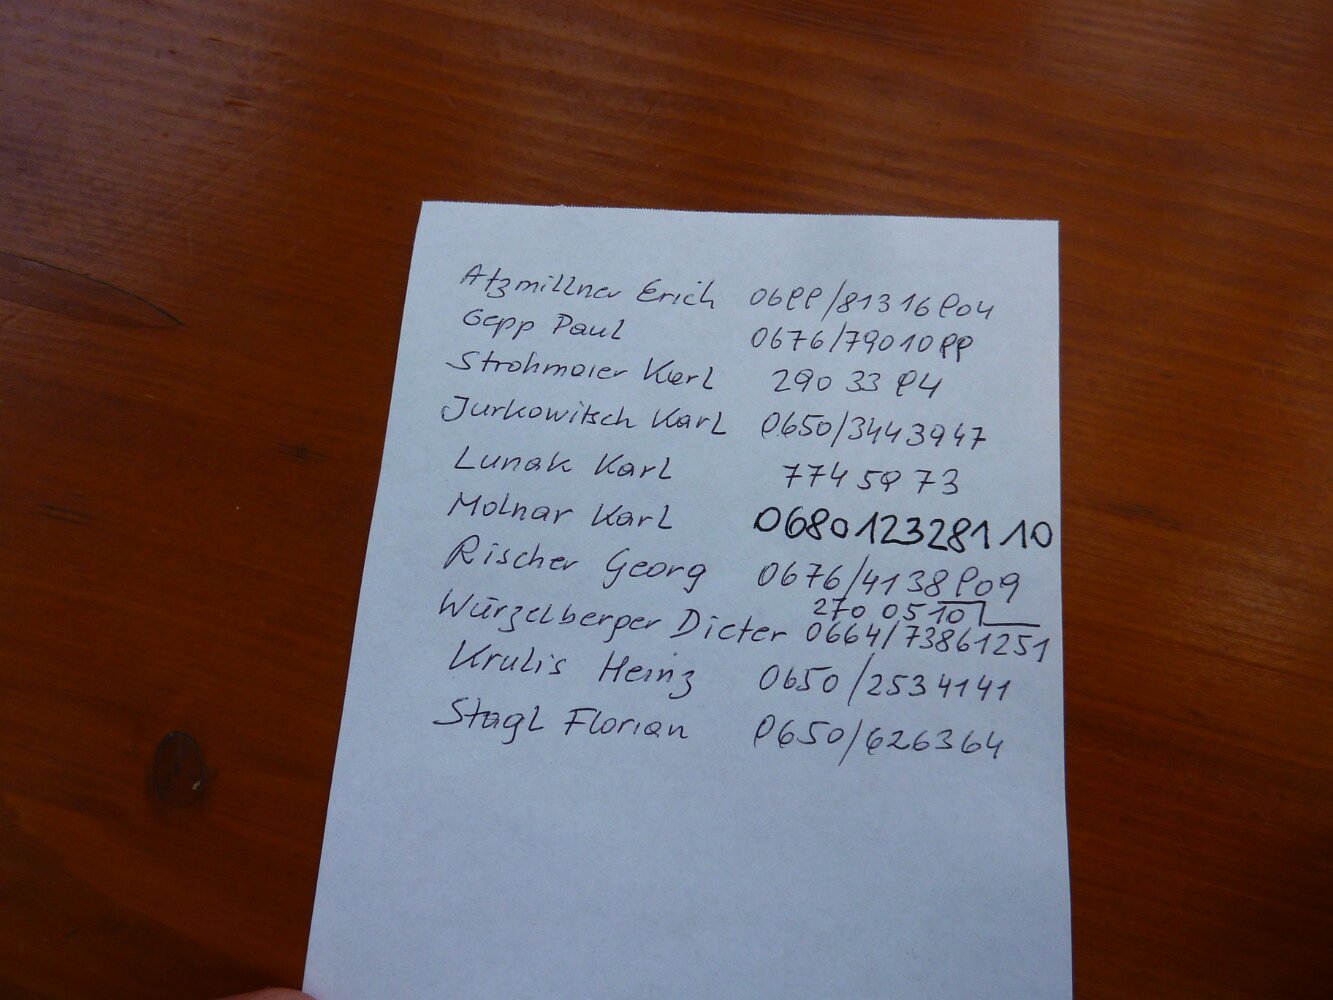 Atzmillner Erich 0688/81316804
Gepp Paul 0676/7901088
Strohmaier Karl 290 33 84
Jurkowitsch Karl 0650/3443947
Lunak Karl 774 58 73
Molnar Karl 0680 123 281 10
Rischer Georg 0676/4138809
270 05 10
Würzelberger Dieter 0664/73861251
Krulis Heinz 0650/2534141
Stagl Florian 0650/626364